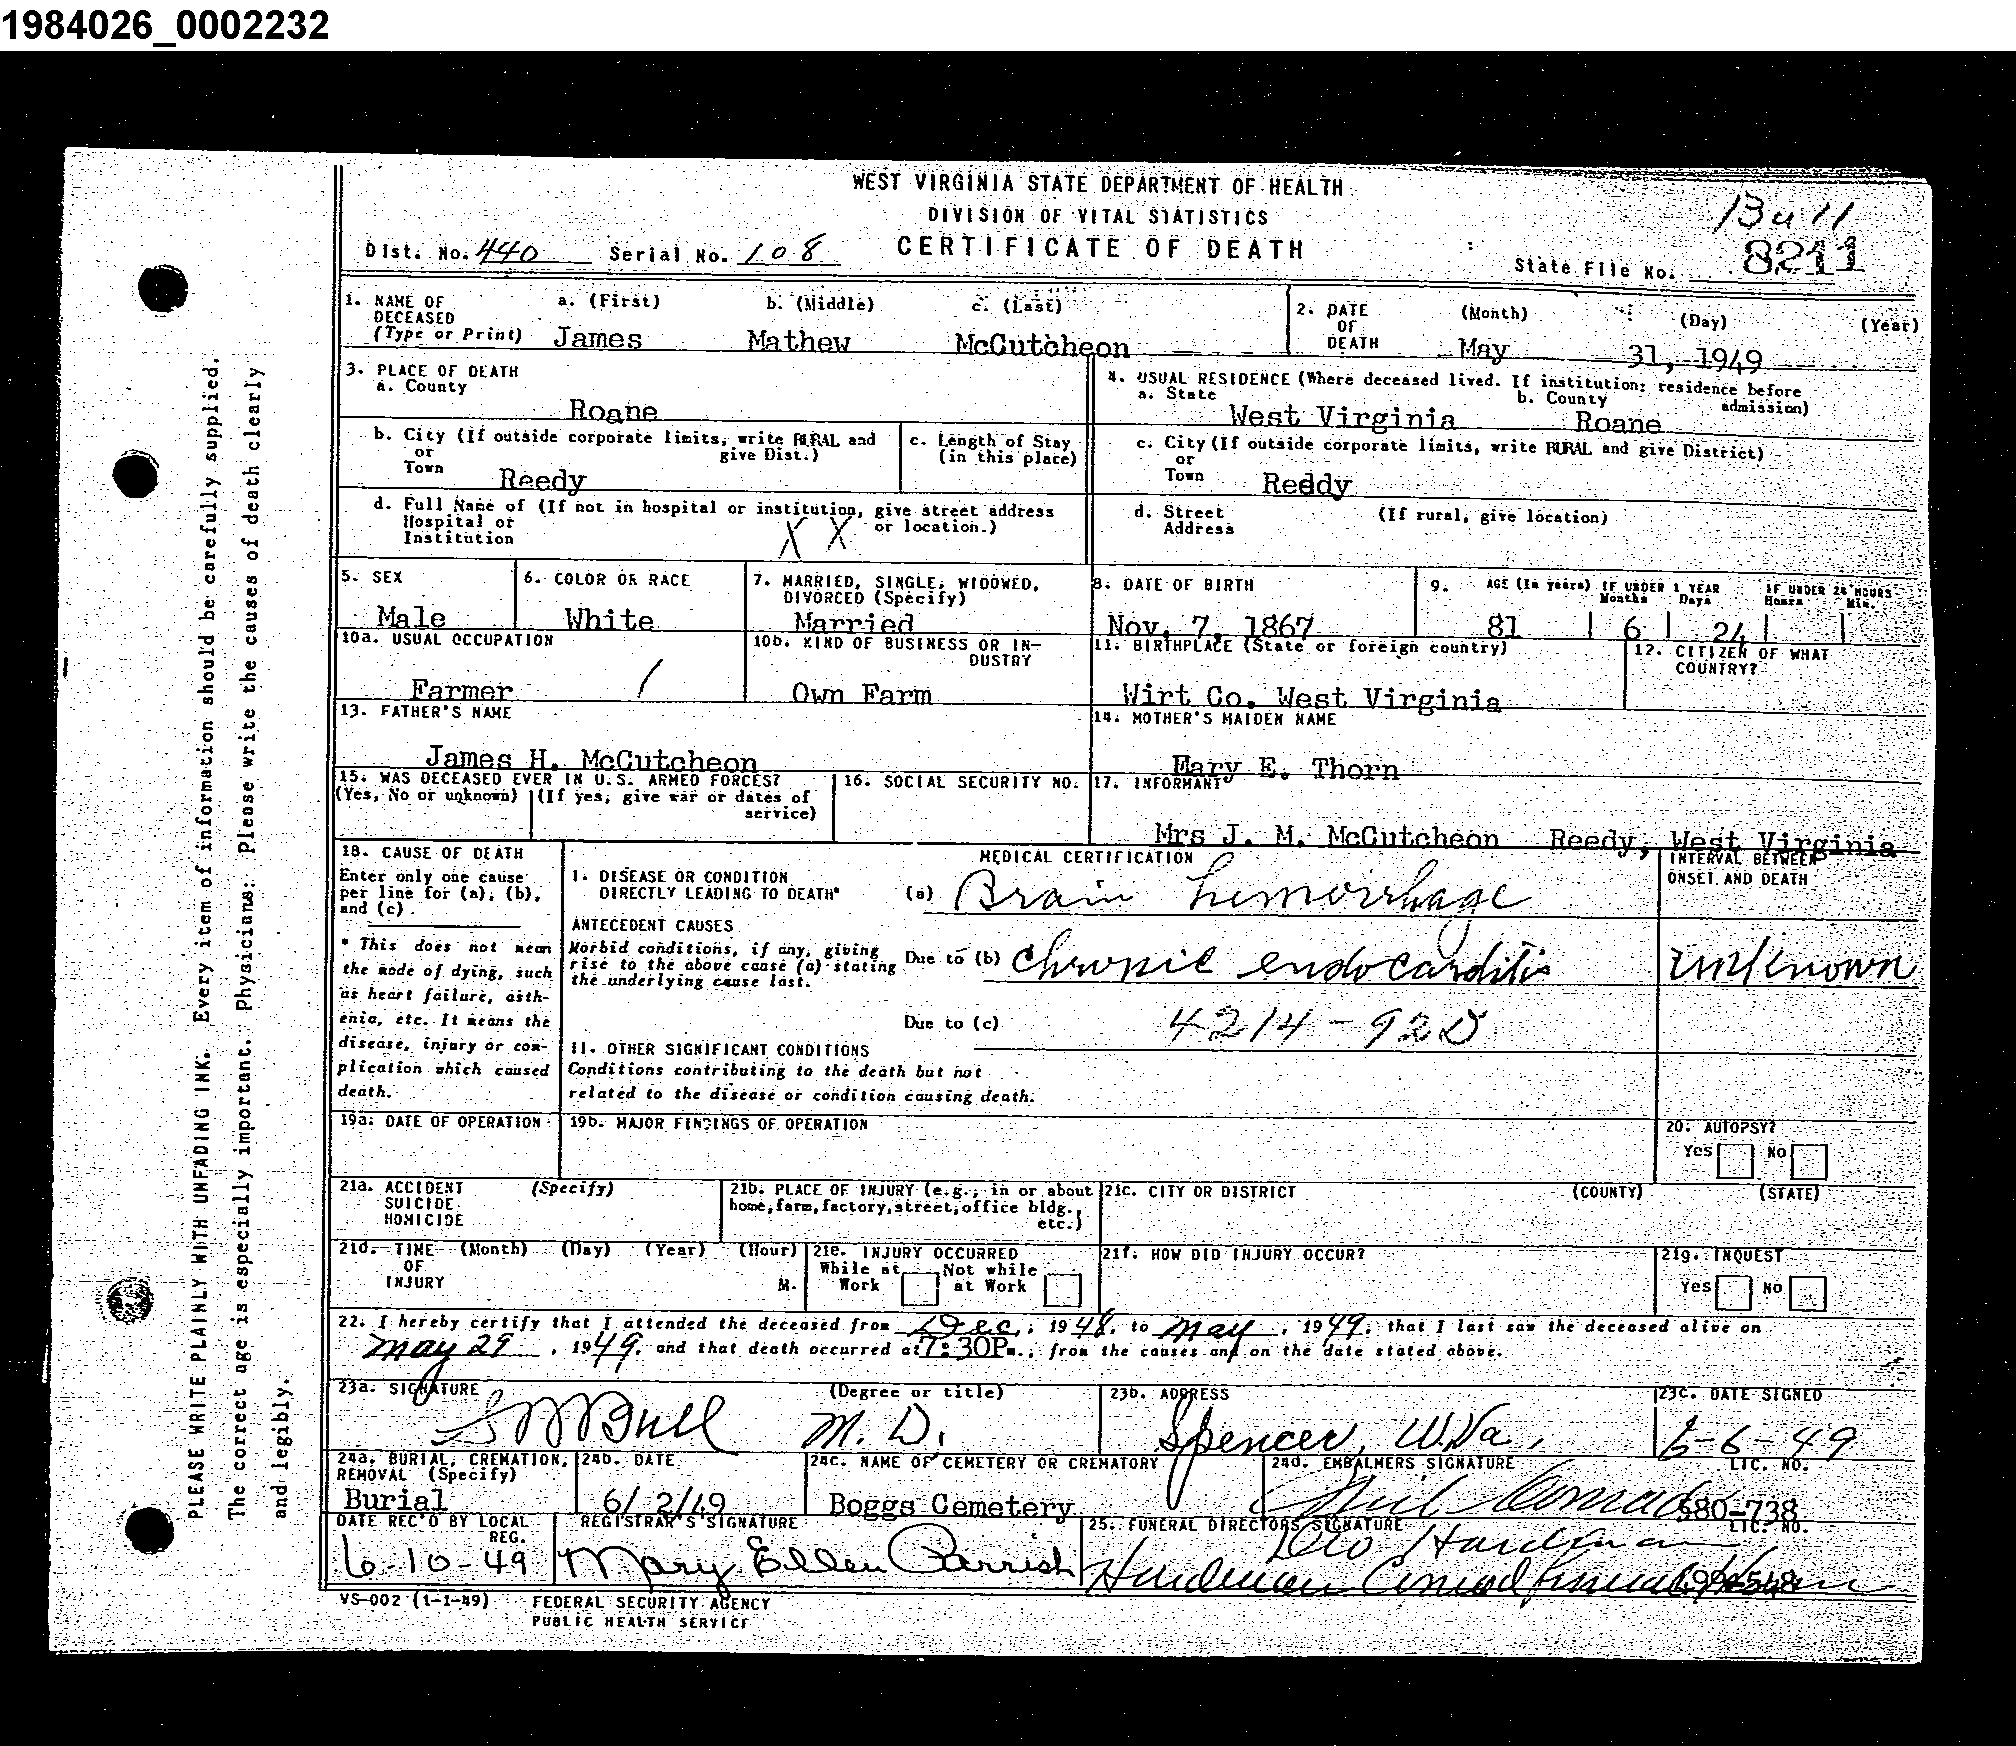 1984026_0002232
WEST VIRGINIA STATE DEPARTMENT OF HEALTH
DIVISION OF VITAL STATISTICS
CERTIFICATE OF DEATH
Dist. No. 440 Serial No. 108
Bull
State File No. 8211
1. NAME OF DECEASED (Type or Print) a. (First) b. (Middle) c. (Last)
James Mathew McCutcheon
2. DATE OF DEATH (Month) (Day) (Year)
May 31, 1949
3. PLACE OF DEATH
a. County
Roane
4. USUAL RESIDENCE (Where deceased lived. If institution: residence before admission)
a. State b. County
West Virginia Roane
b. City (If outside corporate limits, write RURAL and give Dist.) or Town
Reedy
c. Length of Stay (in this place)
c. City (If outside corporate limits, write RURAL and give District) or Town
Reddy
d. Full Name of (If not in hospital or institution, give street address or location.) Hospital or Institution
X X
d. Street Address (If rural, give location)
5. SEX
Male
6. COLOR OR RACE
White
7. MARRIED, SINGLE, WIDOWED, DIVORCED (Specify)
Married
8. DATE OF BIRTH
Nov. 7, 1867
9. AGE (In years) IF UNDER 1 YEAR Months Days IF UNDER 24 HOURS Hours Min.
81 6 24
10a. USUAL OCCUPATION
Farmer /
10b. KIND OF BUSINESS OR INDUSTRY
Own Farm
11. BIRTHPLACE (State or foreign country)
Wirt Co. West Virginia
12. CITIZEN OF WHAT COUNTRY?
13. FATHER'S NAME
James H. McCutcheon
14. MOTHER'S MAIDEN NAME
Mary E. Thorn
15. WAS DECEASED EVER IN U.S. ARMED FORCES?
(Yes, No or unknown) (If yes, give war or dates of service)
16. SOCIAL SECURITY NO.
17. INFORMANT
Mrs J. M. McCutcheon Reedy, West Virginia
18. CAUSE OF DEATH
Enter only one cause per line for (a), (b), and (c).
* This does not mean the mode of dying, such as heart failure, asthenia, etc. It means the disease, injury or complication which caused death.
MEDICAL CERTIFICATION
INTERVAL BETWEEN ONSET AND DEATH
I. DISEASE OR CONDITION DIRECTLY LEADING TO DEATH*
(a) Brain hemorrhage
ANTECEDENT CAUSES
Morbid conditions, if any, giving rise to the above cause (a) stating the underlying cause last.
Due to (b) Chronic endocarditis unknown
Due to (c) 4214 - 92D
II. OTHER SIGNIFICANT CONDITIONS
Conditions contributing to the death but not related to the disease or condition causing death.
19a. DATE OF OPERATION
19b. MAJOR FINDINGS OF OPERATION
20. AUTOPSY?
Yes No
21a. ACCIDENT SUICIDE HOMICIDE (Specify)
21b. PLACE OF INJURY (e.g., in or about home, farm, factory, street, office bldg., etc.)
21c. CITY OR DISTRICT (COUNTY) (STATE)
21d. TIME OF INJURY (Month) (Day) (Year) (Hour) M.
21e. INJURY OCCURRED
While at Work Not while at Work
21f. HOW DID INJURY OCCUR?
21g. INQUEST
Yes No
22. I hereby certify that I attended the deceased from Dec., 1948, to May, 1949, that I last saw the deceased alive on
May 29, 1949, and that death occurred at 7:30P m., from the causes and on the date stated above.
23a. SIGNATURE (Degree or title)
Bull M. D.
23b. ADDRESS
Spencer, W.Va.,
23c. DATE SIGNED
6-6-49
24a. BURIAL, CREMATION, REMOVAL (Specify)
Burial
24b. DATE
6/ 2/49
24c. NAME OF CEMETERY OR CREMATORY
Boggs Cemetery
24d. EMBALMERS SIGNATURE LIC. NO.
Conrad 580-738
DATE REC'D BY LOCAL REG.
6-10-49
REGISTRAR'S SIGNATURE
Mary Ellen Parrish
25. FUNERAL DIRECTORS SIGNATURE LIC. NO.
Hardman
VS-002 (1-1-49) FEDERAL SECURITY AGENCY
PUBLIC HEALTH SERVICE
PLEASE WRITE PLAINLY WITH UNFADING INK. Every item of information should be carefully supplied.
The correct age is especially important. Physicians: Please write the causes of death clearly
and legibly.